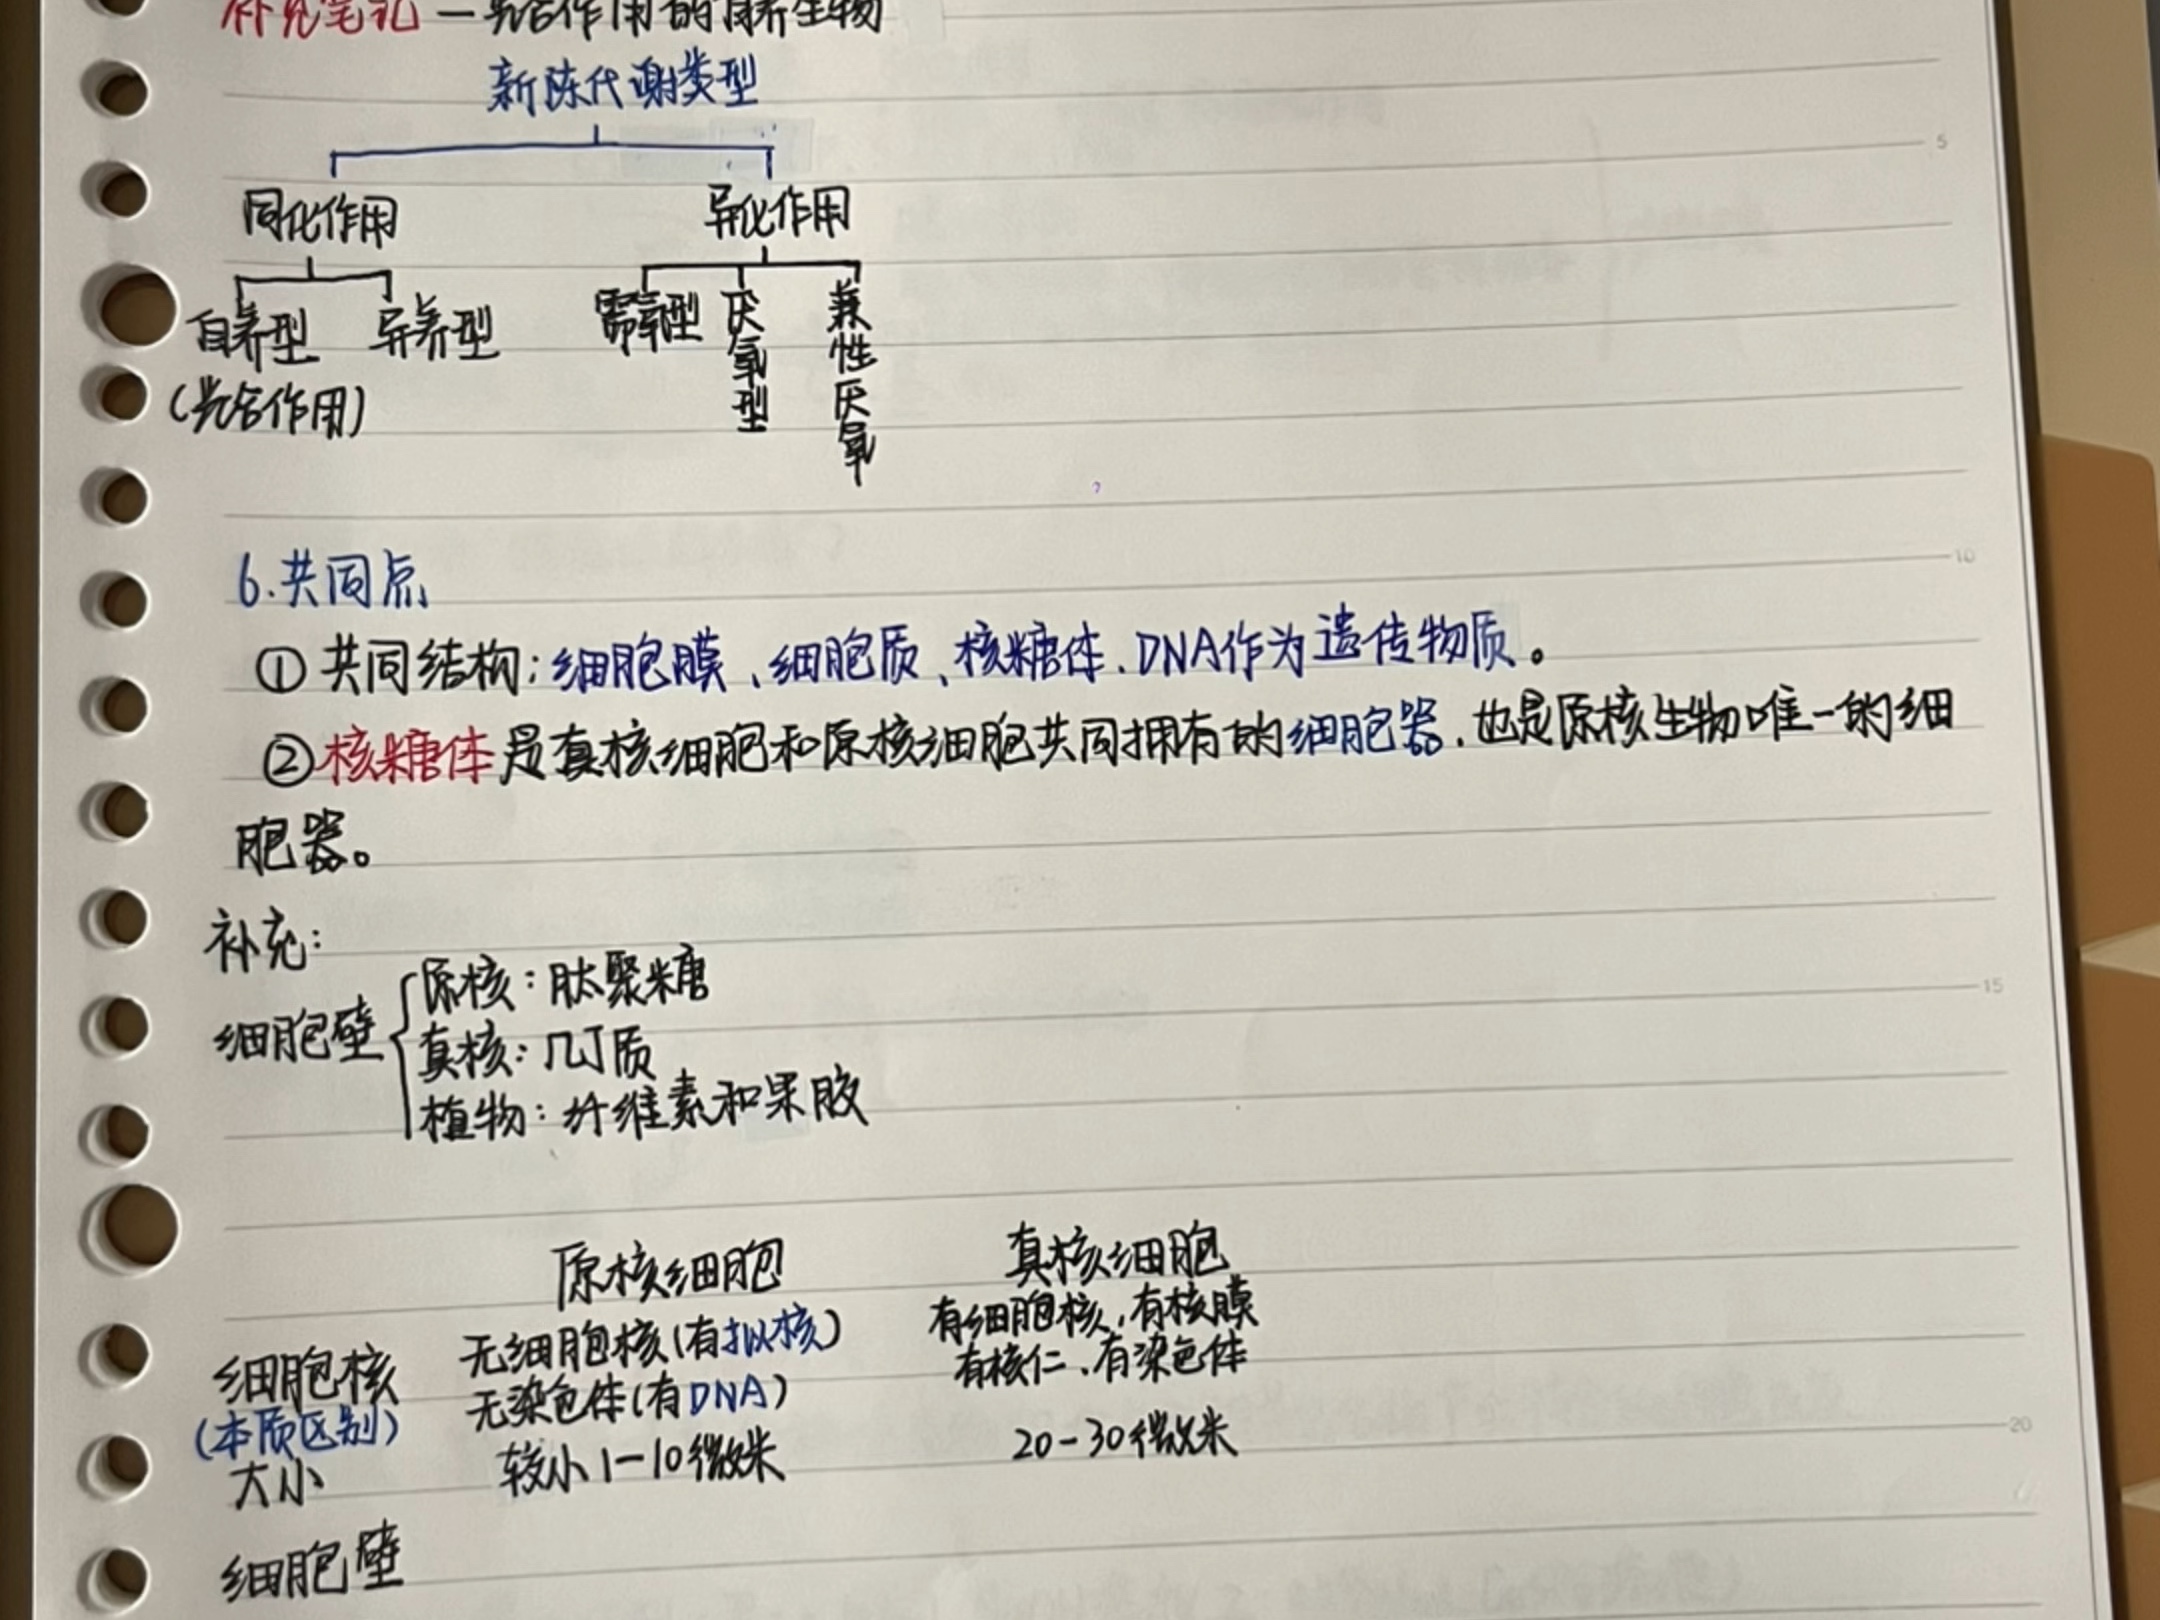 补充笔记 — 光合作用的自养生物
新陈代谢类型
同化作用 异化作用
自养型 异养型 需氧型 厌氧型 兼性厌氧
(光合作用)
6.共同点
① 共同结构:细胞膜、细胞质、核糖体、DNA作为遗传物质。
②核糖体是真核细胞和原核细胞共同拥有的细胞器,也是原核生物唯一的细
胞器。
补充:
细胞壁
原核:肽聚糖
真核:几丁质
植物:纤维素和果胶
原核细胞 真核细胞
细胞核 无细胞核(有拟核) 有细胞核,有核膜
(本质区别) 无染色体(有DNA) 有核仁、有染色体
大小 较小1-10微米 20-30微米
细胞壁
5
10
15
20